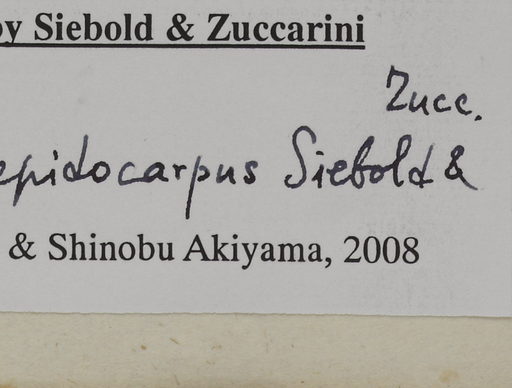 by Siebold & Zuccarini
Zucc.
epidocarpus Siebold &
& Shinobu Akiyama, 2008